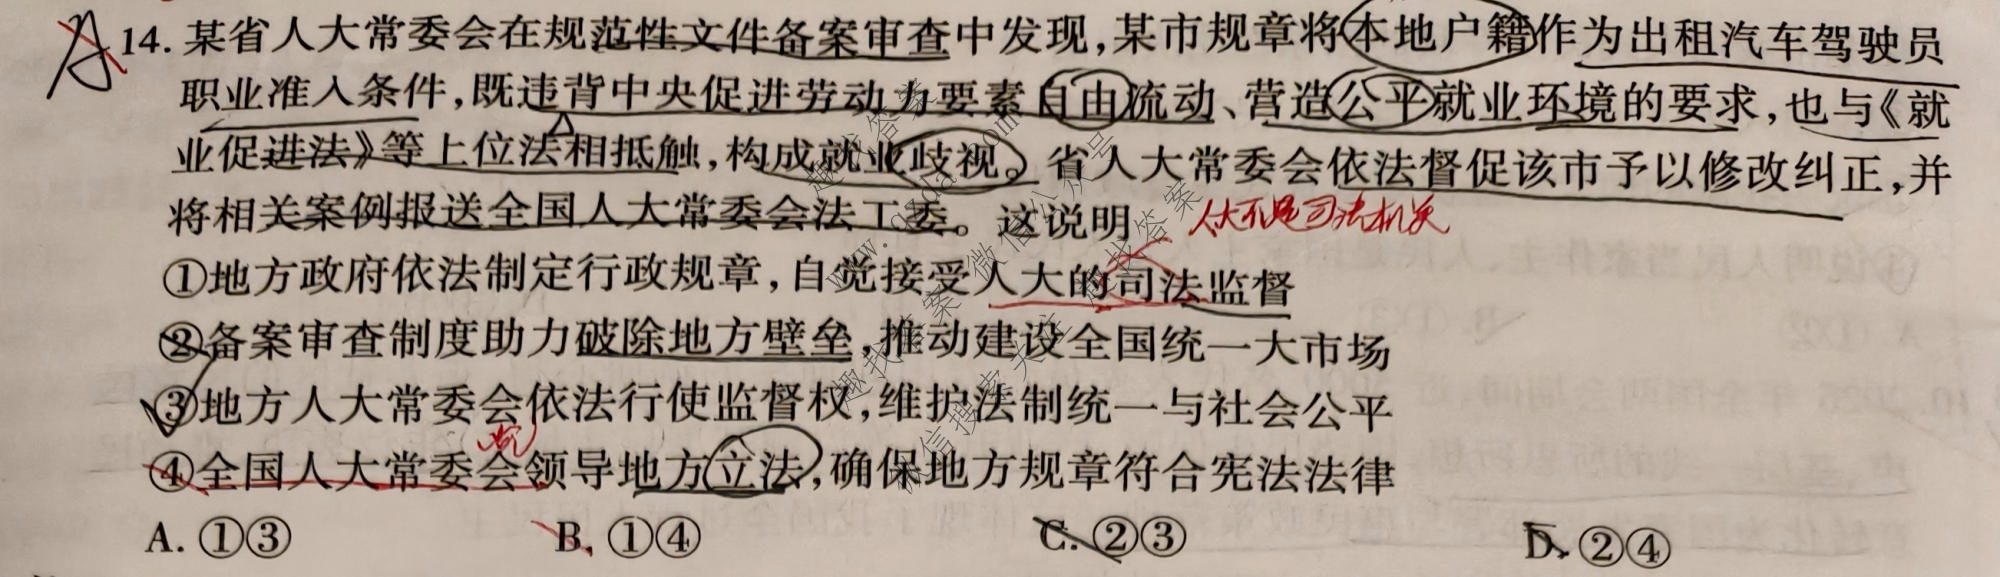 14. 某省人大常委会在规范性文件备案审查中发现，某市规章将本地户籍作为出租汽车驾驶员
职业准入条件，既违背中央促进劳动力要素自由流动、营造公平就业环境的要求，也与《就
业促进法》等上位法相抵触，构成就业歧视。省人大常委会依法督促该市予以修改纠正，并
将相关案例报送全国人大常委会法工委。这说明
人大不是司法机关
①地方政府依法制定行政规章，自觉接受人大的司法监督
②备案审查制度助力破除地方壁垒，推动建设全国统一大市场
③地方人大常委会依法行使监督权，维护法制统一与社会公平
党
④全国人大常委会领导地方立法，确保地方规章符合宪法法律
A. ①③ B. ①④ C. ②③ D. ②④